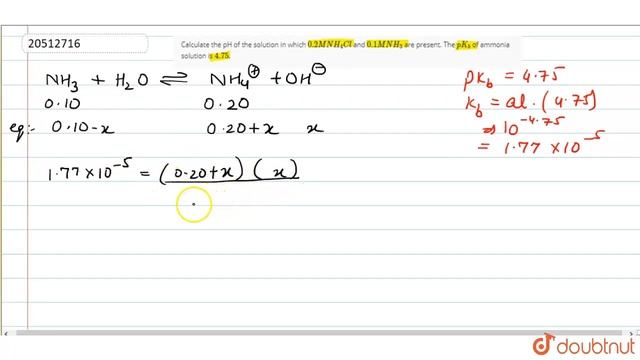 20512716
Calculate the pH of the solution in which 0.2M NH₄Cl and 0.1M NH₃ are present. The pK_b of ammonia
solution is 4.75.
NH₃ + H₂O ⇌ NH₄⊕ + OH⊖
0.10 0.20
eq:- 0.10-x 0.20+x x
1.77×10⁻⁵ = (0.20+x) (x)
pk_b = 4.75
k_b = al. (4.75)
⇒ 10^-4.75
= 1.77 × 10⁻⁵
doubtnut